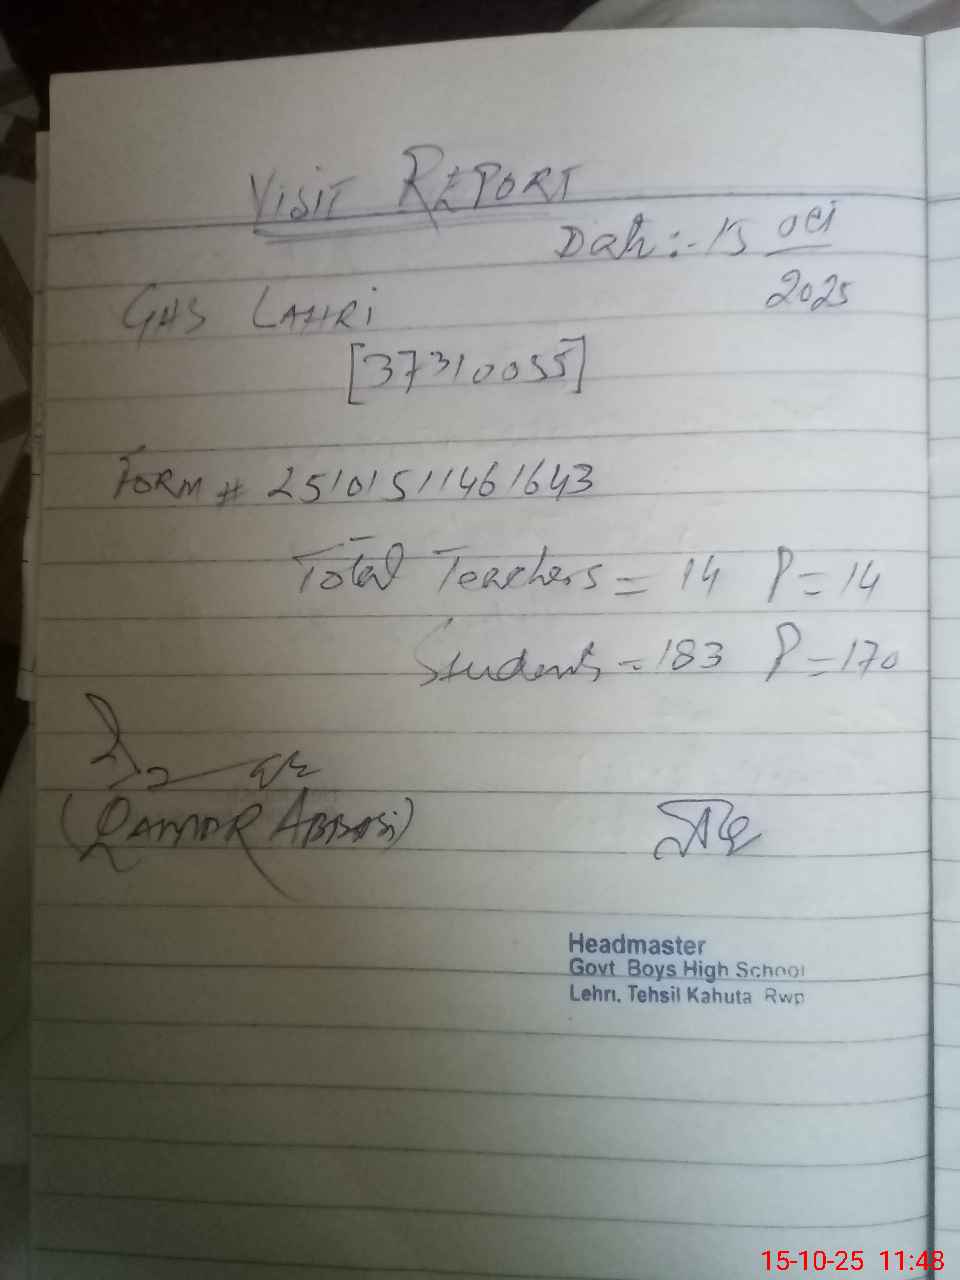 VISIT REPORT
Date:- 15 Oct
2025
GHS LAHRI
[37310055]
FORM # 25101511461643
Total Teachers = 14 P = 14
Students = 183 P = 170
(QAMAR ABBASi)
Headmaster
Govt Boys High School
Lehri, Tehsil Kahuta Rwp
15-10-25 11:48